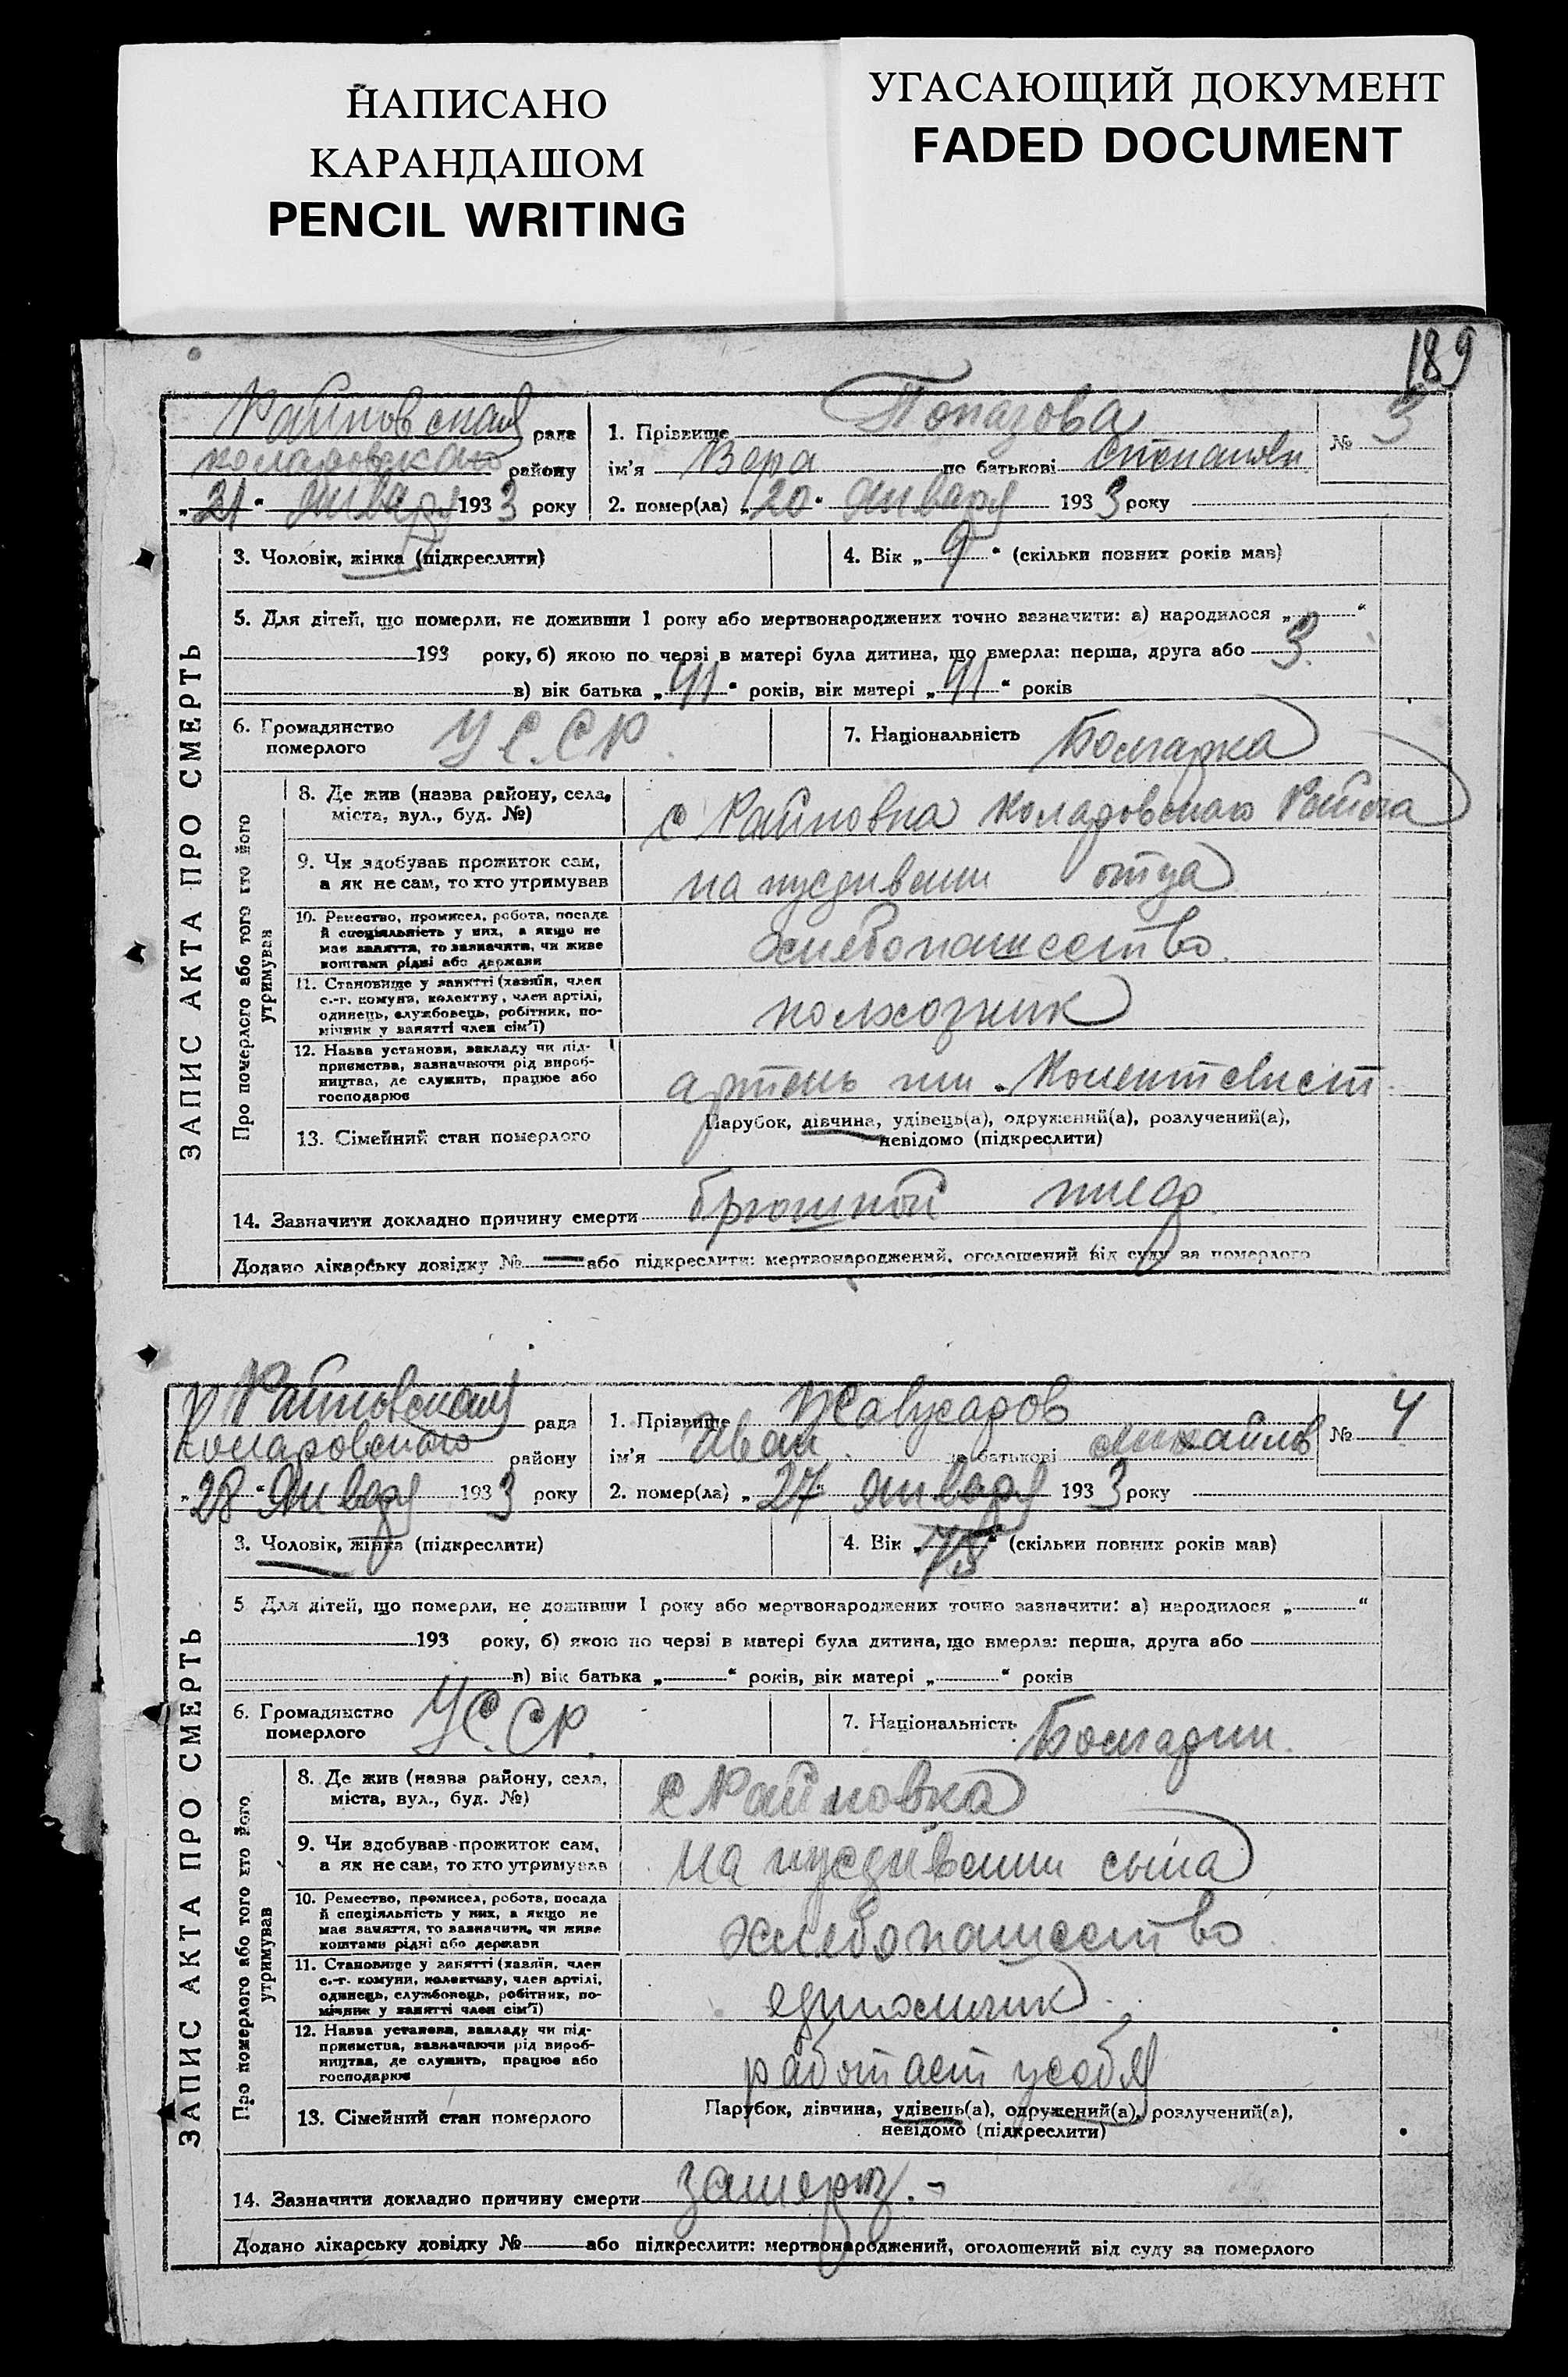 НАПИСАНО
КАРАНДАШОМ
PENCIL WRITING
УГАСАЮЩИЙ ДОКУМЕНТ
FADED DOCUMENT
189
ЗАПИС АКТА ПРО СМЕРТЬ
Райновская рада
Коларовского району
„21“ января 1933 року
1. Прізвище Топазова
ім'я Вера по батькові Степановн
№ 3
2. помер(ла) „20“ января 1933 року
3. Чоловік, жінка (підкреслити)
4. Вік „9“ (скільки повних років мав)
5. Для дітей, що померли, не доживши 1 року або мертвонароджених точно зазначити: а) народилося „ “
193 року, б) якою по черзі в матері була дитина, що вмерла: перша, друга або 3.
в) вік батька „41“ років, вік матері „41“ років
6. Громадянство померлого
У.С.С.Р.
7. Національність Болгарка
Про померлого або того хто його утримував
8. Де жив (назва району, села, міста, вул., буд. №)
с Райновка Коларовского Района
9. Чи здобував прожиток сам, а як не сам, то хто утримував
на иждивении отца
10. Ремество, промисел, робота, посада й спеціяльність у них, а якщо не має заняття, то зазначити, чи живе коштами рідні або держави
хлебопашество
11. Становище у занятті (хазяїн, член с.-г. комуни, колективу, член артілі, одинець, службовець, робітник, помічник у занятті член сім'ї)
колхозник
12. Назва установи, закладу чи підприємства, зазначаючи рід виробництва, де служить, працює або господарює
артель им. Колективист
13. Сімейний стан померлого
Парубок, дівчина, удівець(а), одружений(а), розлучений(а), невідомо (підкреслити)
14. Зазначити докладно причину смерти брюшной тиф
Додано лікарську довідку № — або підкреслити: мертвонароджений, оголошений від суду за померлого
ЗАПИС АКТА ПРО СМЕРТЬ
Райновская рада
Коларовского району
„28“ Января 1933 року
1. Прізвище
ім'я Иван по батькові Михайлов
№ 4
2. помер(ла) „27“ января 1933 року
3. Чоловік, жінка (підкреслити)
4. Вік „75“ (скільки повних років мав)
5. Для дітей, що померли, не доживши 1 року або мертвонароджених точно зазначити: а) народилося „ “
193 року, б) якою по черзі в матері була дитина, що вмерла: перша, друга або
в) вік батька „ “ років, вік матері „ “ років
6. Громадянство померлого
У.С.С.Р.
7. Національність Болгарин.
Про померлого або того хто його утримував
8. Де жив (назва району, села, міста, вул., буд. №)
с Райновка
9. Чи здобував прожиток сам, а як не сам, то хто утримував
на иждивении сына
10. Ремество, промисел, робота, посада й спеціяльність у них, а якщо не має заняття, то зазначити, чи живе коштами рідні або держави
хлебопашество
11. Становище у занятті (хазяїн, член с.-г. комуни, колективу, член артілі, одинець, службовець, робітник, помічник у занятті член сім'ї)
единоличник
12. Назва установи, закладу чи підприємства, зазначаючи рід виробництва, де служить, працює або господарює
работает у себя
13. Сімейний стан померлого
Парубок, дівчина, удівець(а), одружений(а), розлучений(а), невідомо (підкреслити)
14. Зазначити докладно причину смерти замерз. -
Додано лікарську довідку № або підкреслити: мертвонароджений, оголошений від суду за померлого